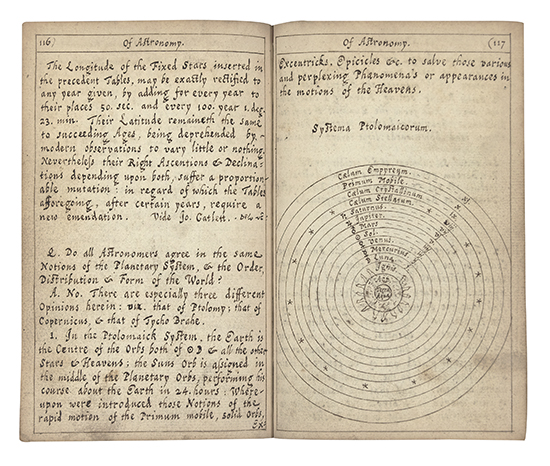 116) Of Astronomy.
The Longitude of the Fixed Stars inserted in
the precedent Tables, may be exactly rectified to
any year given, by adding for every year to
their places 50. sec. and every 100. year 1. deg.
23. min. Their Latitude remaineth the same
to succeeding Ages, being deprehended by
modern observations to vary little or nothing.
Nevertheless their Right Ascentions & Declina-
tions depending upon both, suffer a proportion-
able mutation: in regard of which the Tables
afforegoing, after certain years, require a
new emendation. Vide Jo. Catlett.
Q. Do all Astronomers agree in the same
Notions of the Planetary System, & the Order,
Distribution & Form of the World?
A. No. There are especially three different
Opinions herein: viz. that of Ptolomy; that of
Copernicus, & that of Tycho Brahe.
1. In the Ptolomaick System, the Earth is
the Centre of the Orbs both of ☉☽ & all the other
Stars & Heavens: the Suns Orb is assioned in
the middle of the Planetary Orbs, performing his
course about the Earth in 24. hours: Where-
upon were introduced those Notions of the
rapid motion of the Primum mobile, solid Orbs,
Ex-
Of Astronomy. (117
Excentricks, Epicicles &c. to salve those various
and perplexing Phænomena's or appearances in
the motions of the Heavens.
Systema Ptolomaicorum.
Cælum Empyreum.
Primum Mobile.
Cælum Crystallinum
Cælum Stellarum.
Saturnus.
Jupiter.
Mars
Sol.
Venus.
Mercurius
Luna
Ignis